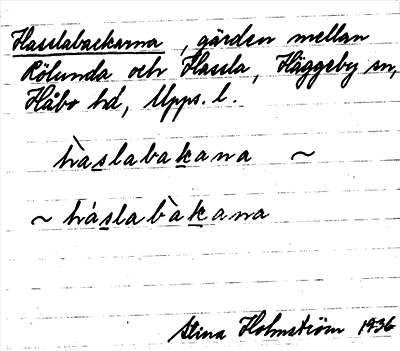 Hasslabackarna, gärden mellan
Rölunda och Hassla, Häggeby sn,
Håbo hd, Upps. l.
hàslabakana ~
~ háslabàkana
Stina Holmström 1936